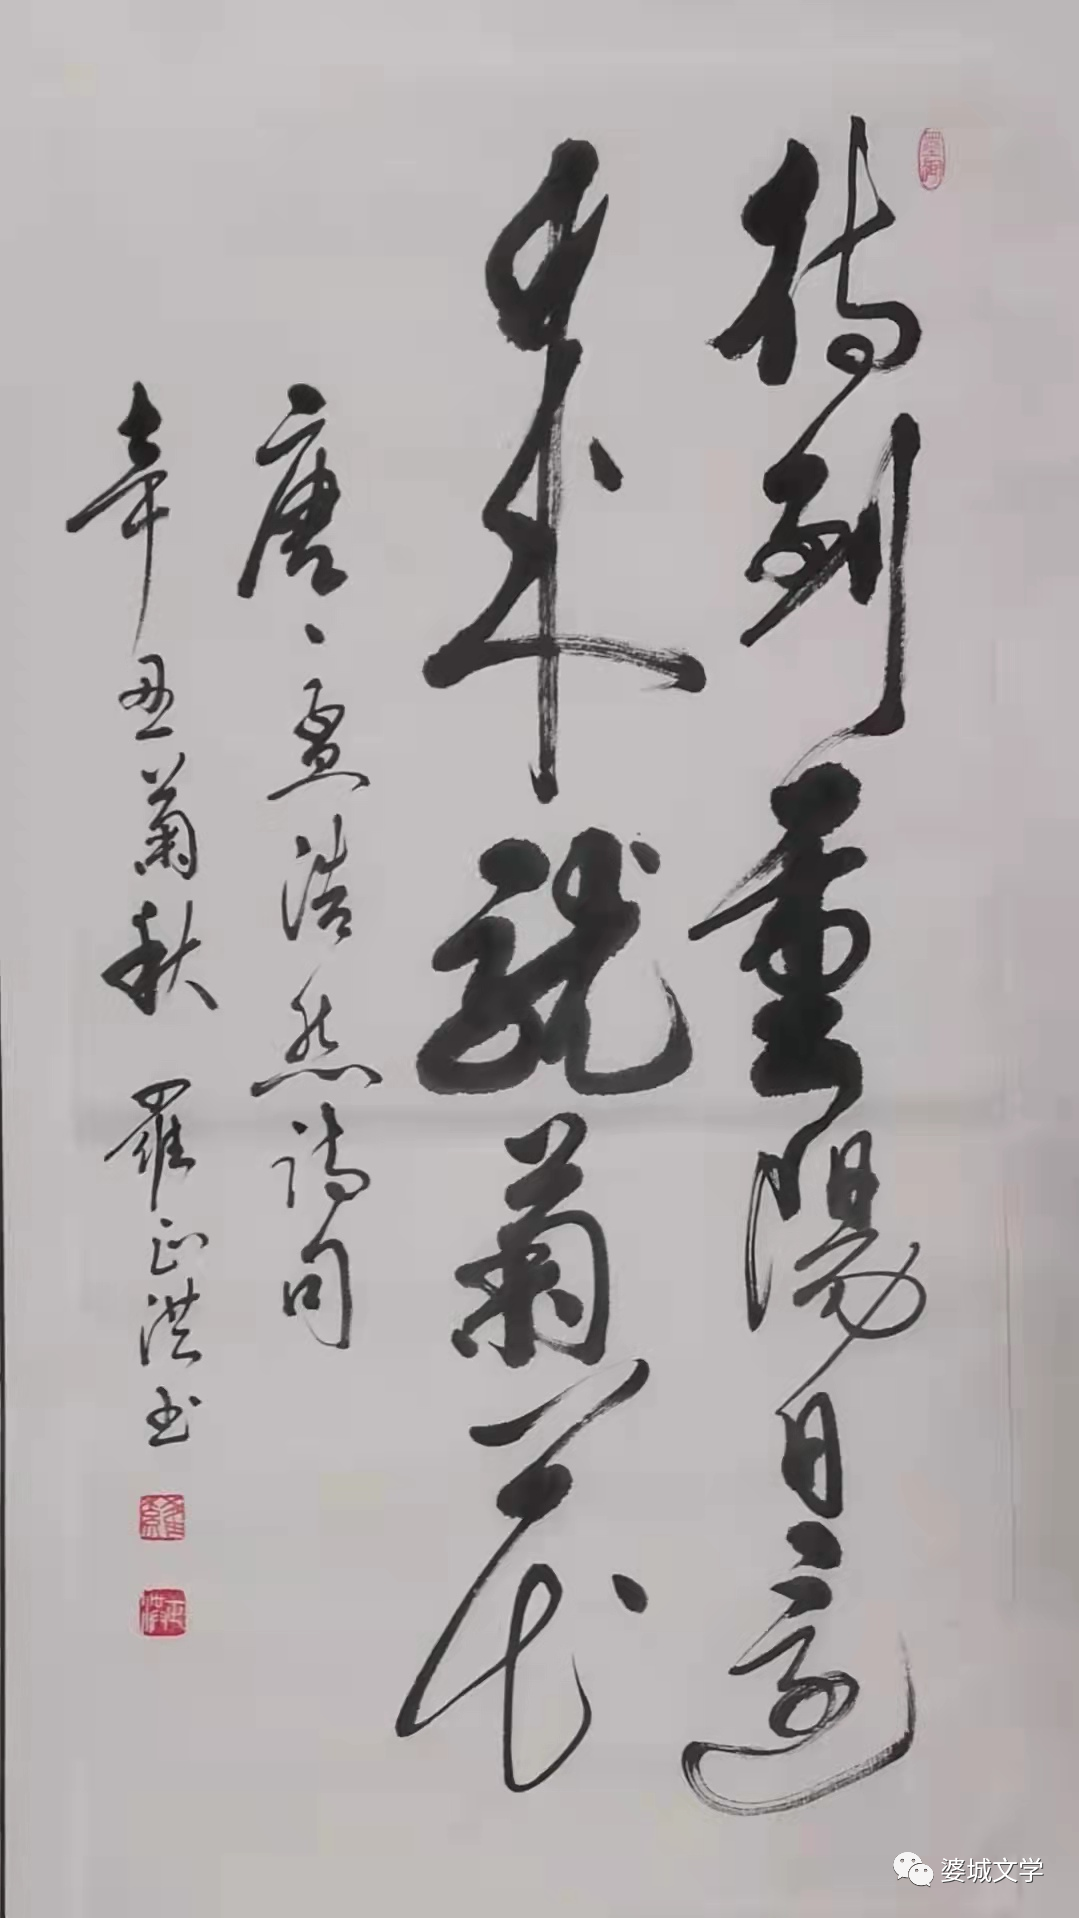 待到重陽日還
来就菊花
唐、孟浩然詩句
辛丑菊秋 羅正洪书
婆城文学